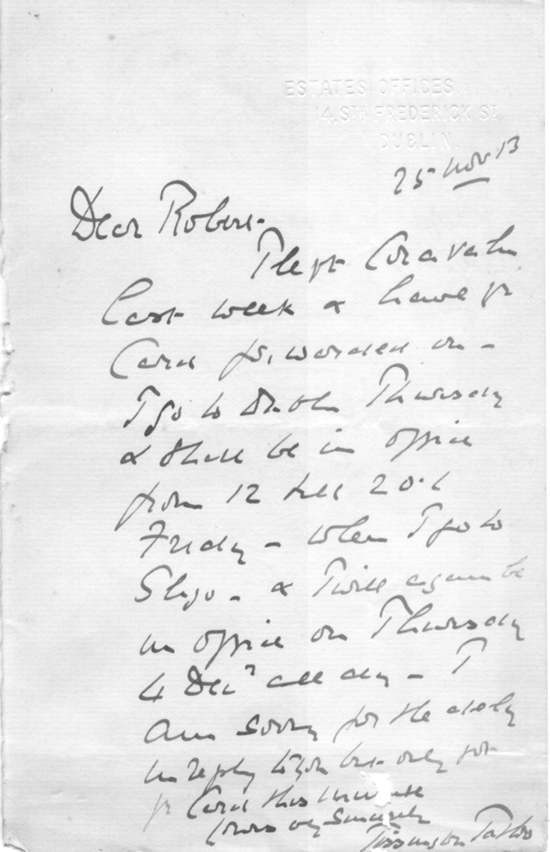 ESTATES OFFICES
4, STH FREDERICK ST
DUBLIN.
25 Nov 13
Dear Robert.
I left
last week & have yr
Card forwarded on -
I go to Dublin Thursday
& shall be in office
from 12 till
Friday - when I go to
Sligo - & I will again be
in office on Thursday
4 Decr all day - I
am sorry for the delay
in reply to you but only got
yr Card this minute
Yours vy Sincerely